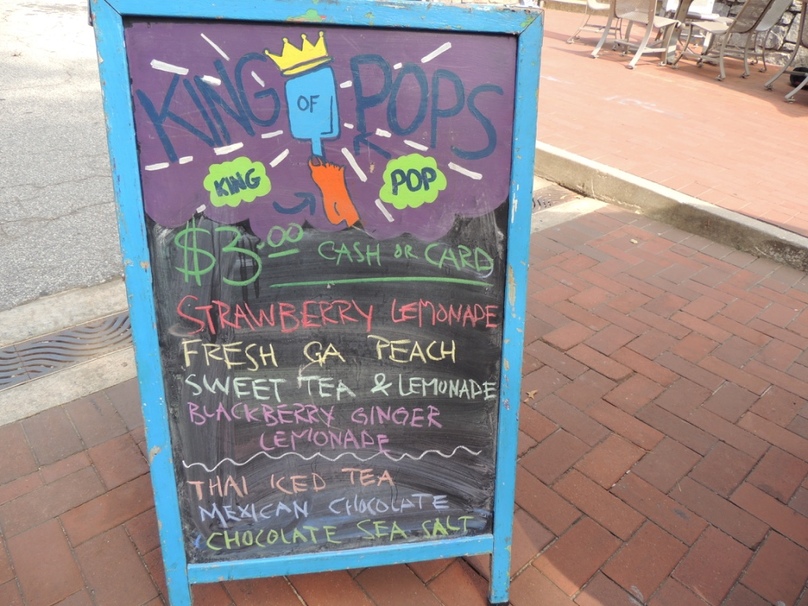 KING OF POPS
KING POP
$3.00 CASH OR CARD
STRAWBERRY LEMONADE
FRESH GA PEACH
SWEET TEA & LEMONADE
BLACKBERRY GINGER
LEMONADE
THAI ICED TEA
MEXICAN CHOCOLATE
CHOCOLATE SEA SALT